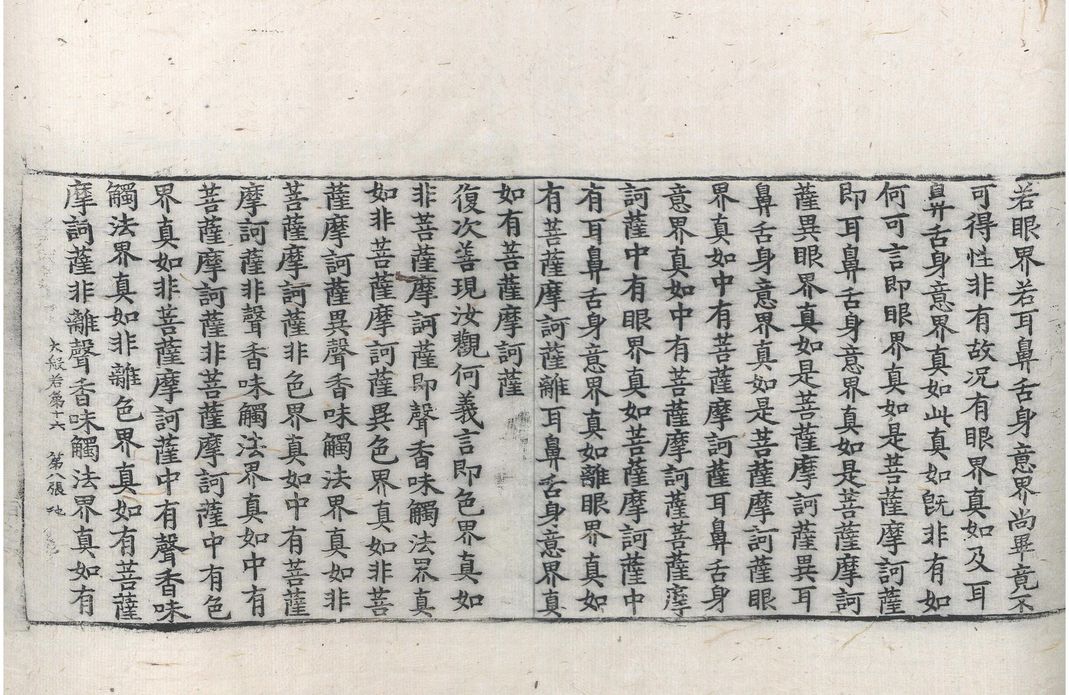 若眼界若耳鼻舌身意界尚畢竟不
可得性非有故况有眼界真如及耳
鼻舌身意界真如此真如旣非有如
何可言即眼界真如是菩薩摩訶薩
即耳鼻舌身意界真如是菩薩摩訶
薩異眼界真如是菩薩摩訶薩異耳
鼻舌身意界真如是菩薩摩訶薩眼
界真如中有菩薩摩訶薩耳鼻舌身
意界真如中有菩薩摩訶薩菩薩摩
訶薩中有眼界真如菩薩摩訶薩中
有耳鼻舌身意界真如離眼界真如
有菩薩摩訶薩離耳鼻舌身意界真
如有菩薩摩訶薩
復次善現汝觀何義言即色界真如
非菩薩摩訶薩即聲香味觸法界真
如非菩薩摩訶薩異色界真如非菩
薩摩訶薩異聲香味觸法界真如非
菩薩摩訶薩非色界真如中有菩薩
摩訶薩非聲香味觸法界真如中有
菩薩摩訶薩非菩薩摩訶薩中有色
界真如非菩薩摩訶薩中有聲香味
觸法界真如非離色界真如有菩薩
摩訶薩非離聲香味觸法界真如有
大般若第十六 第八張 地